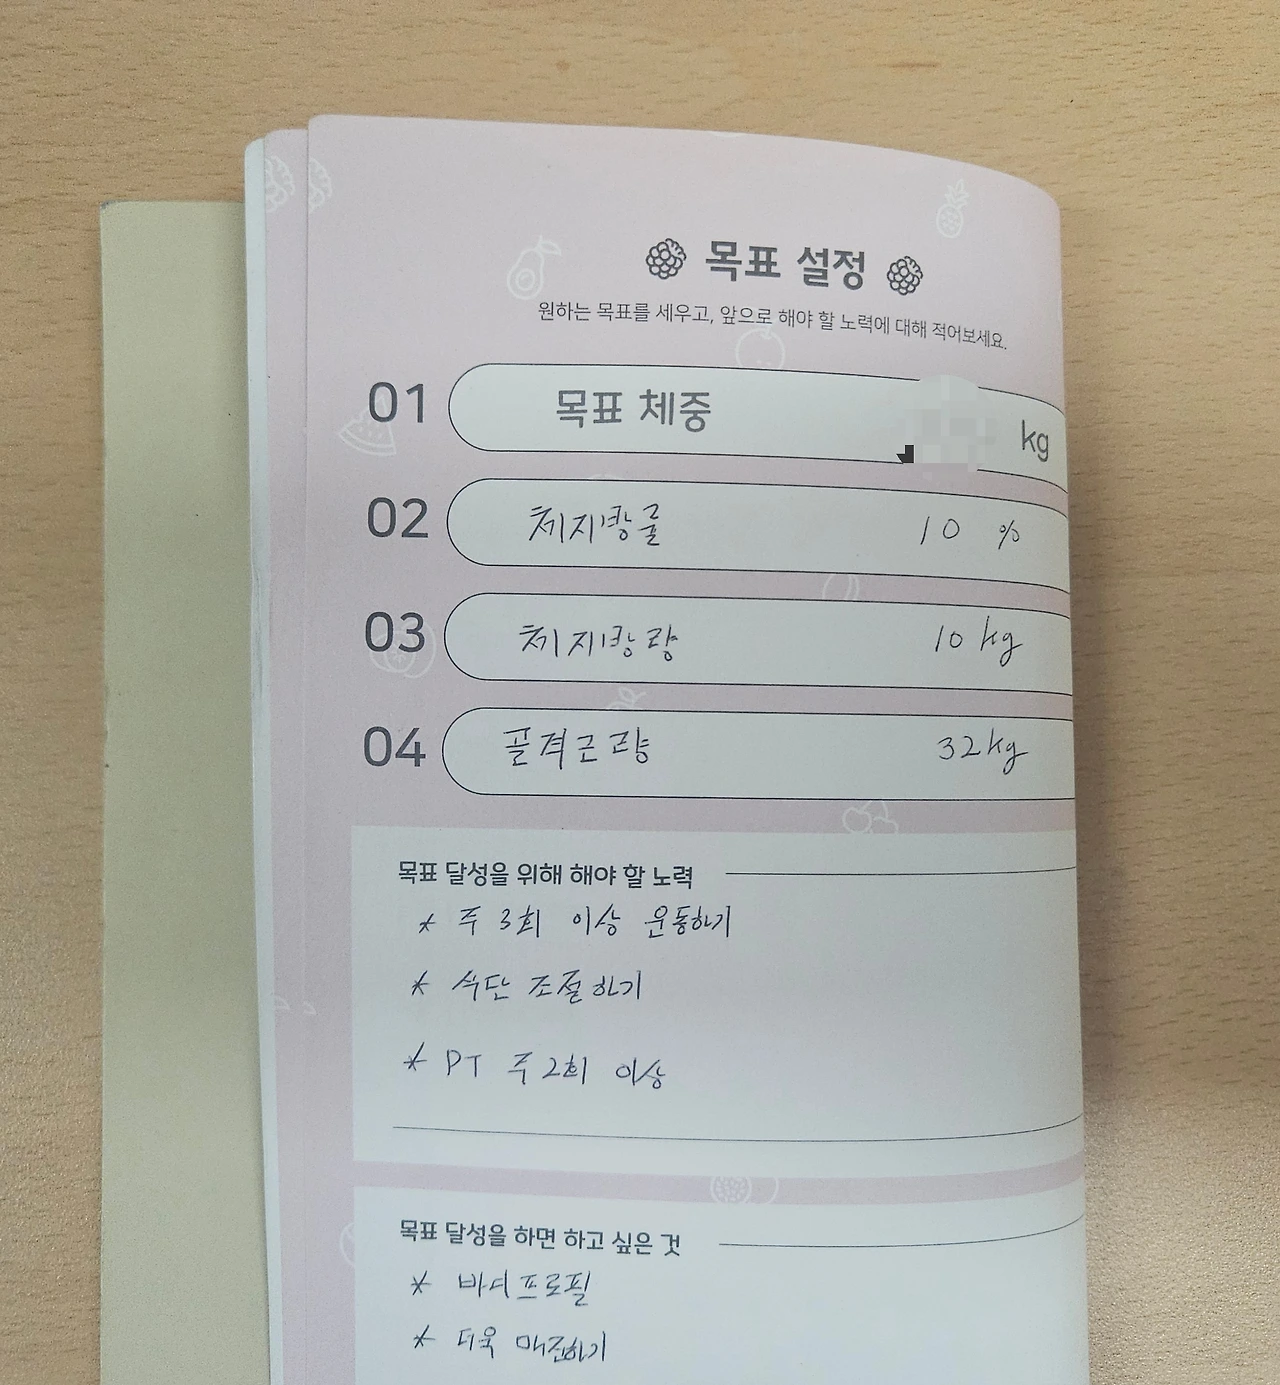 목표 설정
원하는 목표를 세우고, 앞으로 해야 할 노력에 대해 적어보세요.
01 목표 체중 kg
02 체지방률 10 %
03 체지방량 10 kg
04 골격근량 32kg
목표 달성을 위해 해야 할 노력
* 주 3회 이상 운동하기
* 식단 조절하기
* PT 주 2회 이상
목표 달성을 하면 하고 싶은 것
* 바디프로필
* 더욱 매진하기